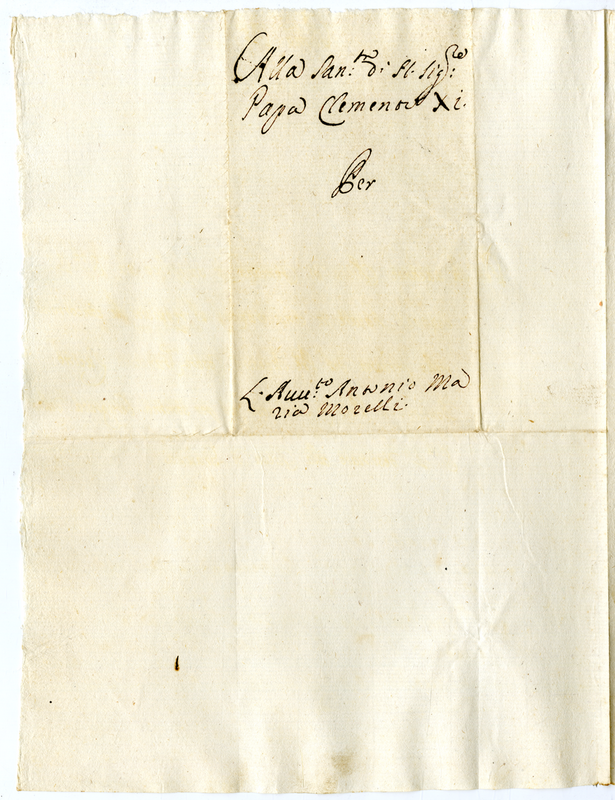 Alla San.tà di N. Sig.re
Papa Clemente XI.
Per
L'Auu.to Antonio Ma
ria Morelli.